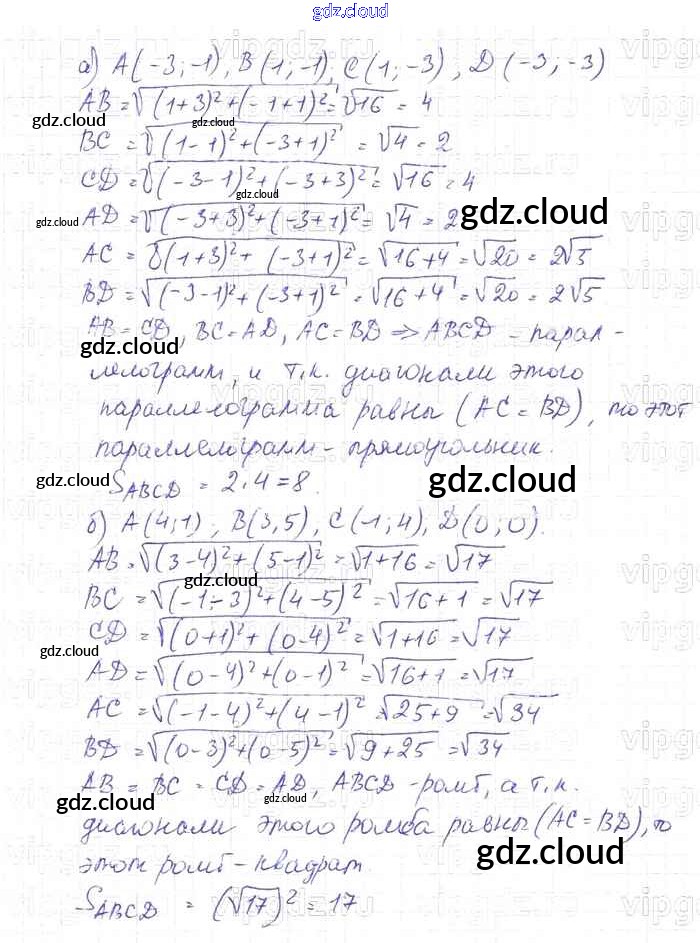 gdz.cloud
а) A(-3; -1), B(1; -1), C(1; -3), D(-3; -3)
AB = √((1+3)²+(-1+1)²) = √16 = 4
gdz.cloud gdz.cloud
BC = √((1-1)²+(-3+1)²) = √4 = 2
CD = √((-3-1)²+(-3+3)²) = √16 = 4
gdz.cloud
AD = √((-3+3)²+(-3+1)²) = √4 = 2
gdz.cloud gdz.cloud
AC = √((1+3)²+(-3+1)²) = √16+4 = √20 = 2√5
BD = √((-3-1)²+(-3+1)²) = √16+4 = √20 = 2√5
AB = CD, BC = AD, AC = BD ⇒ ABCD - парал-
gdz.cloud
лелограмм, и т.к. диагонали этого
параллелограмма равны (AC = BD), то этот
параллелограмм - прямоугольник.
gdz.cloud gdz.cloud
S_ABCD = 2·4 = 8.
б) A(4; 1), B(3, 5), C(-1; 4), D(0; 0).
AB = √((3-4)²+(5-1)²) = √1+16 = √17
gdz.cloud
BC = √((-1-3)²+(4-5)²) = √16+1 = √17
CD = √((0+1)²+(0-4)²) = √1+16 = √17
gdz.cloud
AD = √((0-4)²+(0-1)²) = √16+1 = √17
AC = √((-1-4)²+(4-1)²) = √25+9 = √34
BD = √((0-3)²+(0-5)²) = √9+25 = √34
AB = BC = CD = AD, ABCD - ромб, а т.к.
gdz.cloud gdz.cloud
диагонали этого ромба равны (AC = BD), то
этот ромб - квадрат.
gdz.cloud
S_ABCD = (√17)² = 17